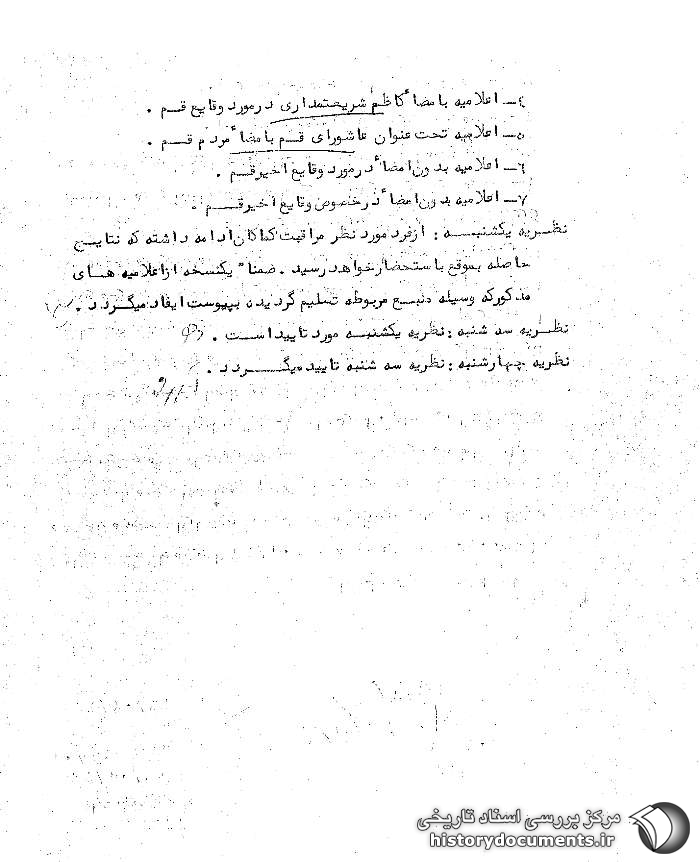 ٤ـ اعلامیه با مضاٴ کاظم شریعتمداری در مورد وقایع قم .
٥ـ اعلامیه تحت عنوان عاشورای قم با مضاٴ مردم قم .
٦ـ اعلامیه بدون امضاٴ در مورد وقایع اخیر قم .
٧ـ اعلامیه بدون امضاٴ در خصوص وقایع اخیر قم .
نظریه یکشنبه : از فرد مورد نظر مراقبت کماکان ادامه داشته که نتایج
حاصله بموقع باستحضار خواهد رسید . ضمنا" یکنسخه از اعلامیه های
مذکور که وسیله منبع مربوطه تسلیم گردیده بپیوست ایفاد میگردد .
نظریه سه شنبه : نظریه یکشنبه مورد تایید است .
نظریه چهارشنبه : نظریه سه شنبه تایید میگردد .
مرکز بررسی اسناد تاریخی
historydocuments.ir